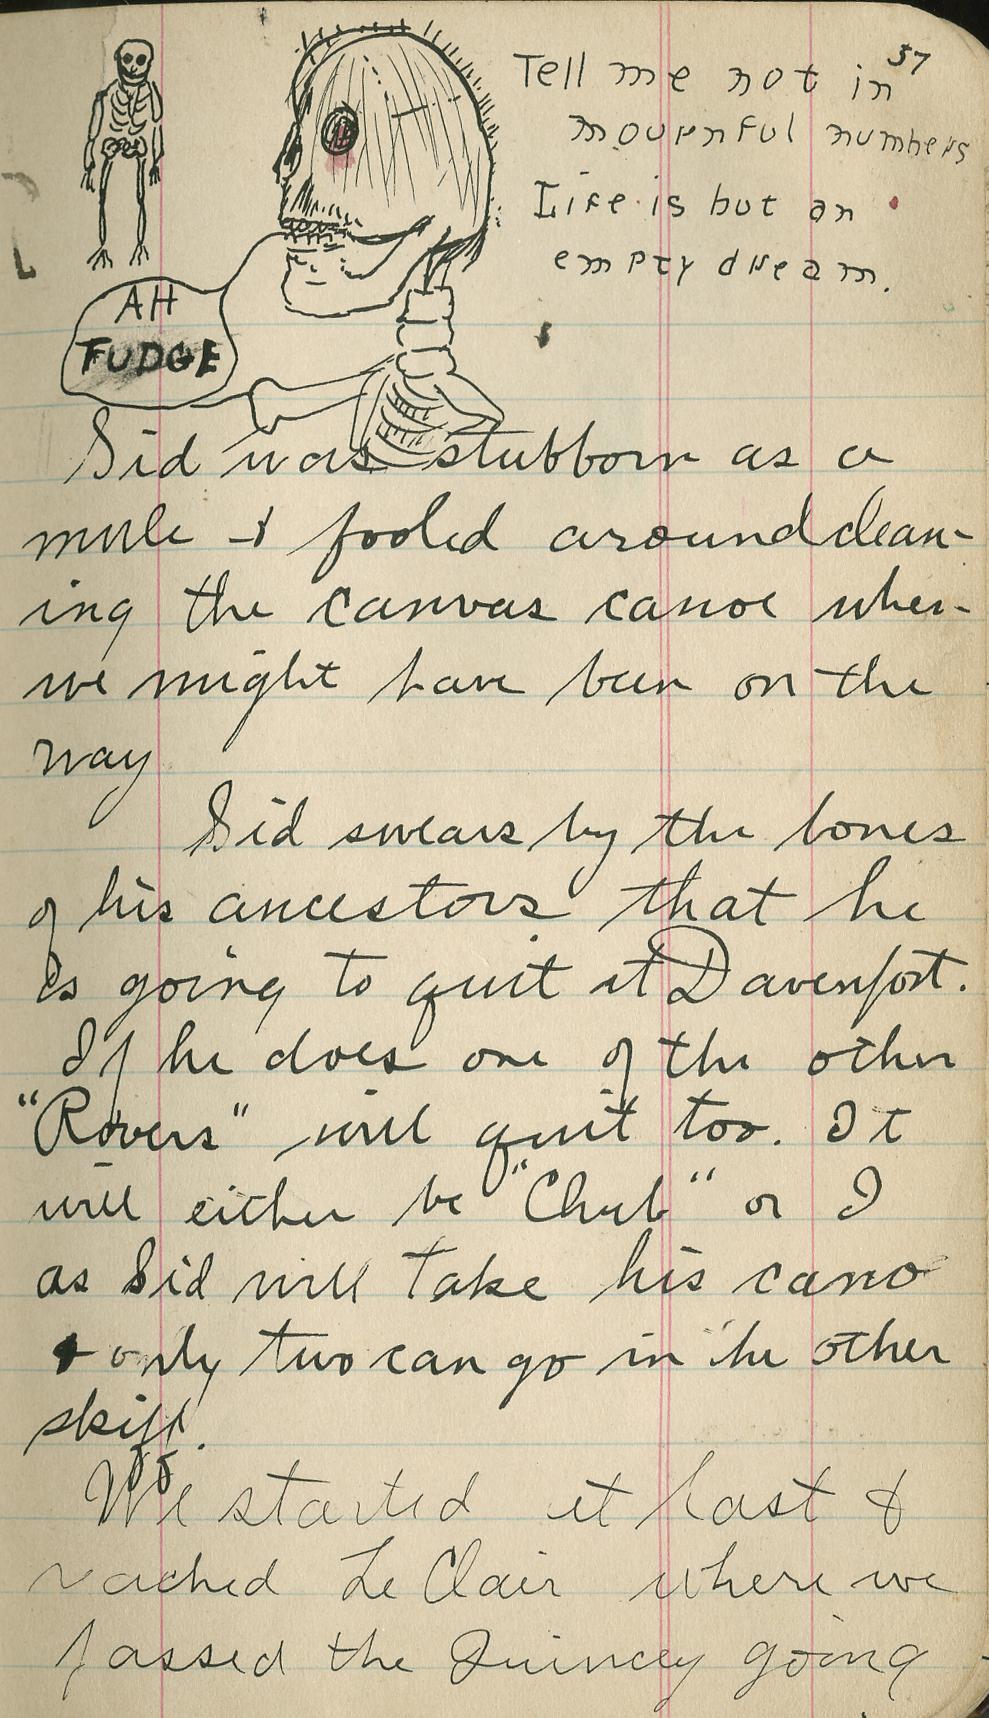 37
Tell me not in
mournful numbers
Life is but an
empty dream.
AH
FUDGE
Sid was stubborn as a
mule & fooled around clean-
ing the canvas canoe when
we might have been on the
way
Sid swears by the bones
of his ancestors that he
is going to quit at Davenport.
If he does one of the other
"Rovers" will quit too. It
will either be "Chub" or I
as Sid will take his cano
& only two can go in the other
skiff.
We started at last &
reached Le Clair where we
passed the Quincey going